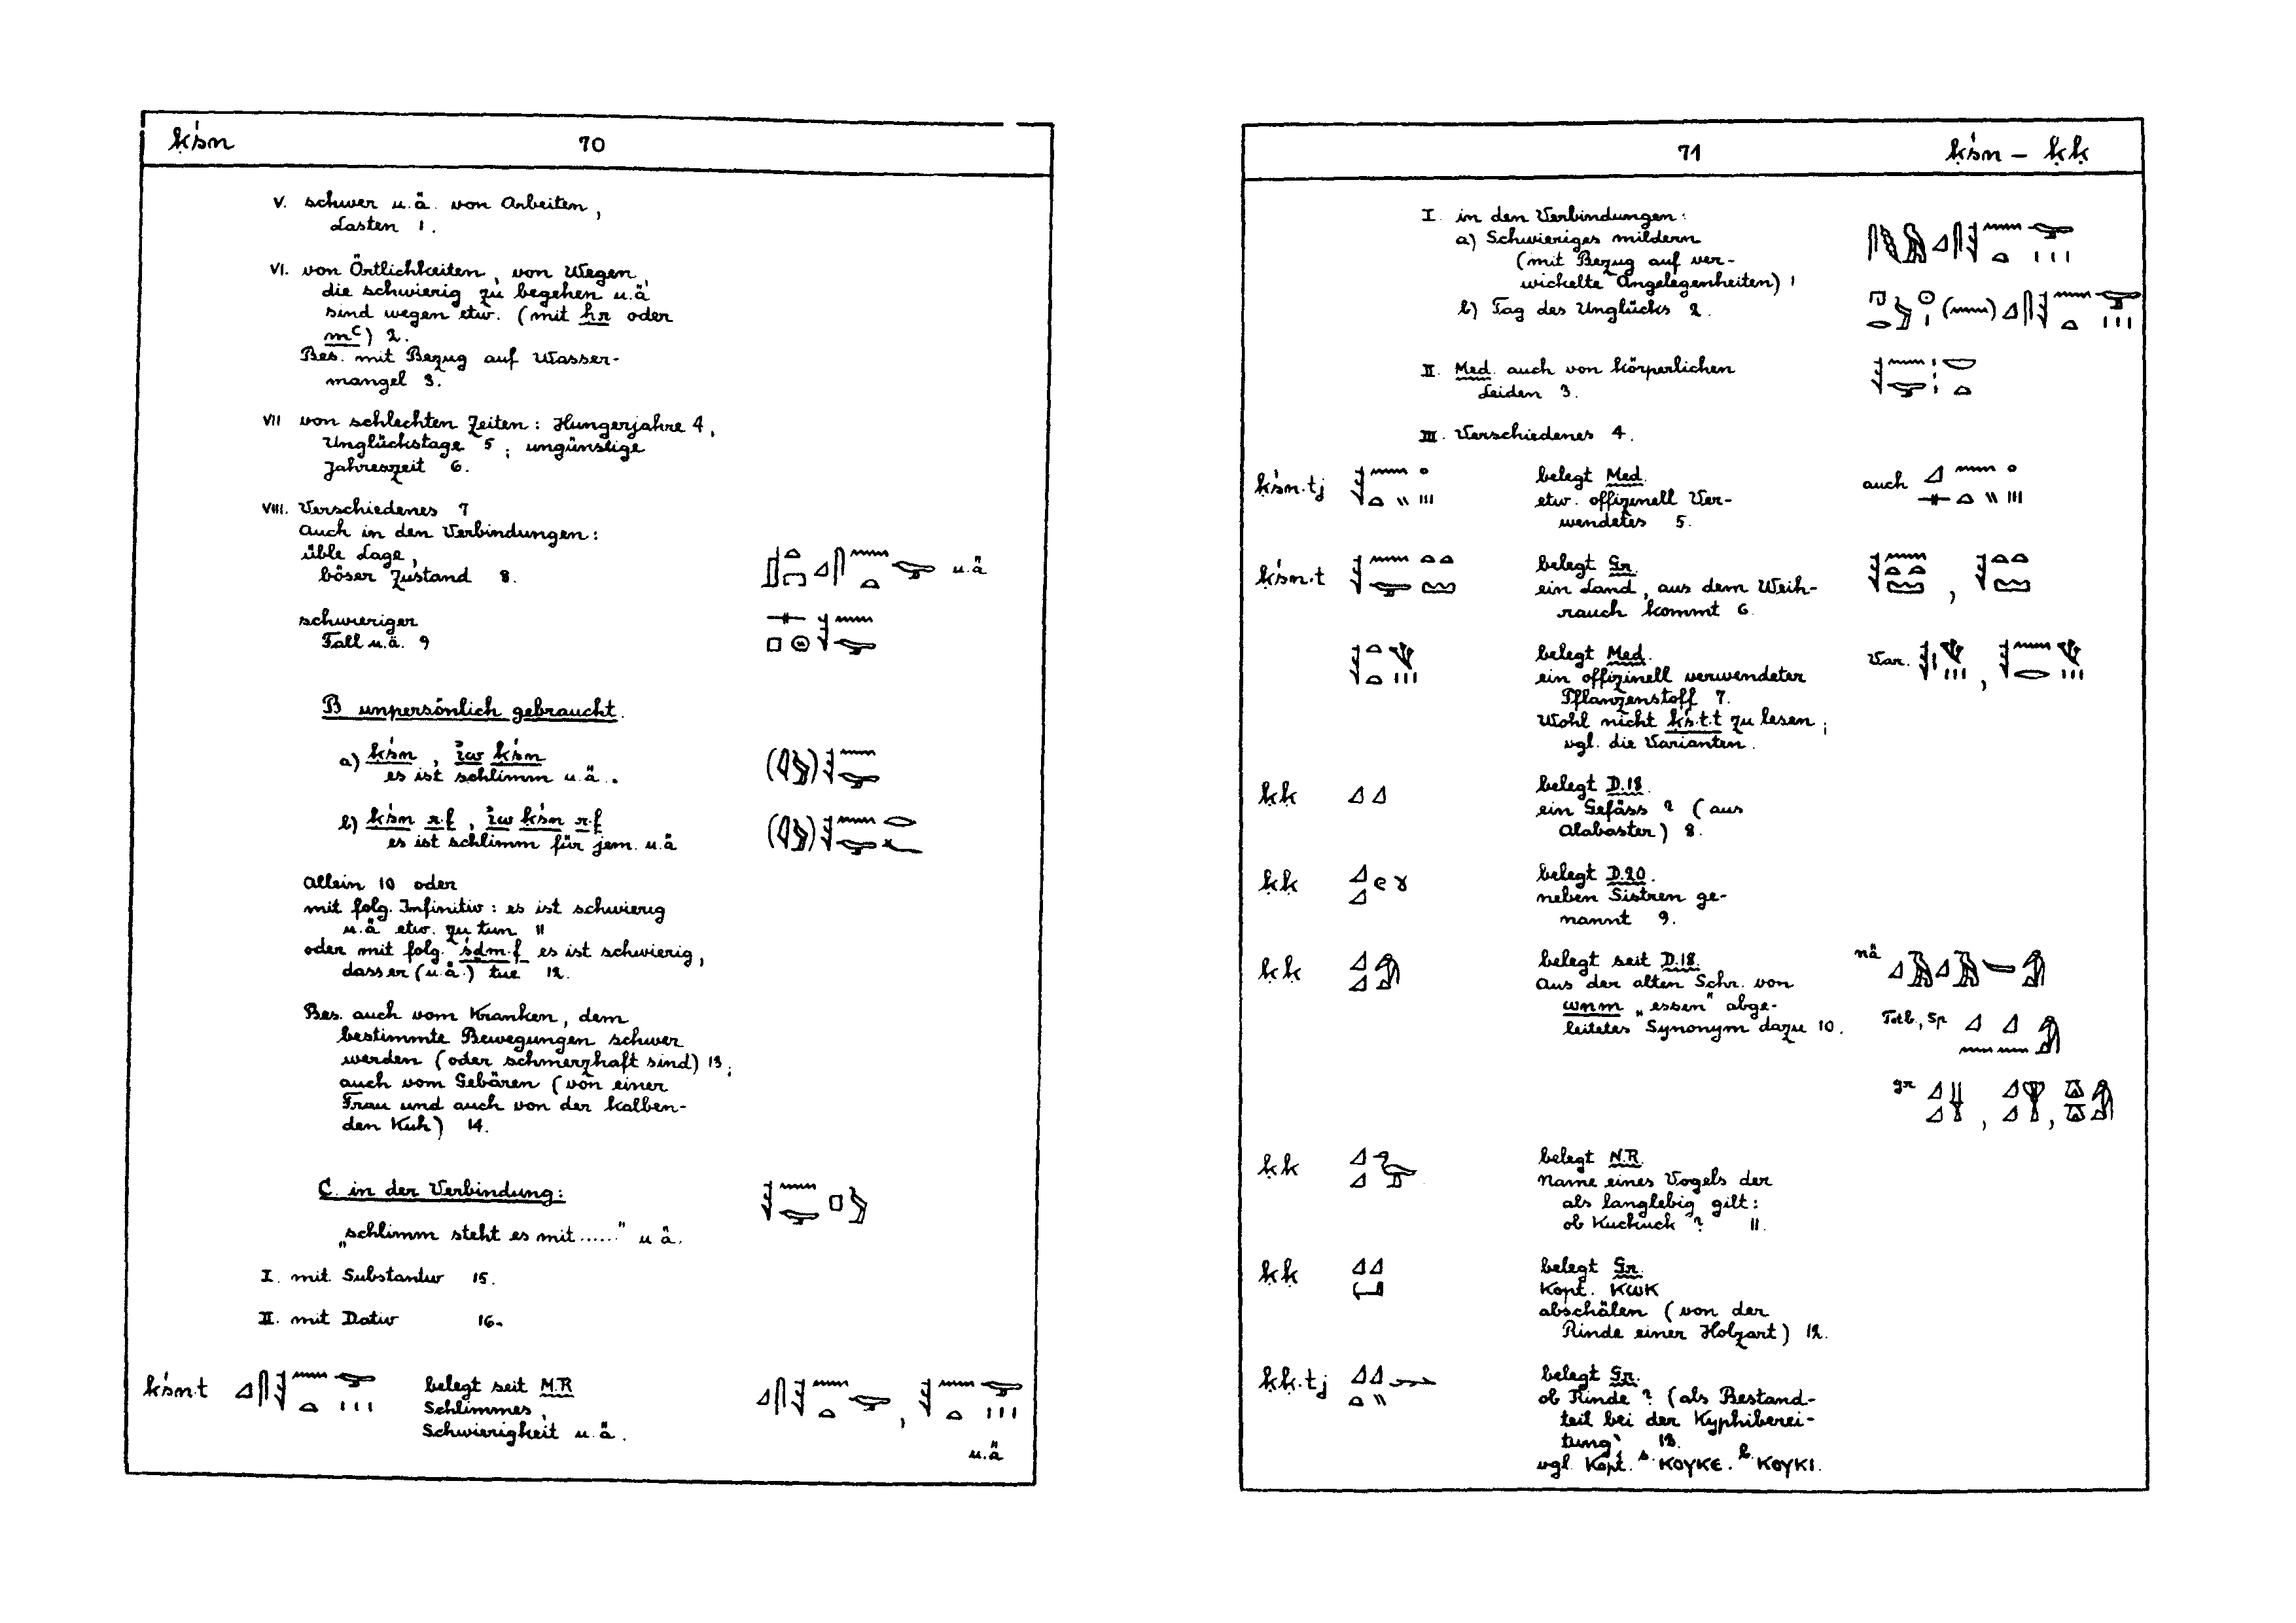 ḳśn 70
V. schwer u.ä. von Arbeiten,
Lasten 1.
VI. von Örtlichkeiten, von Wegen,
die schwierig zu begehen u.ä.
sind wegen etw. (mit ḥr oder
mꜥ) 2.
Bes. mit Bezug auf Wasser-
mangel 3.
VII von schlechten Zeiten: Hungerjahre 4,
Unglückstage 5; ungünstige
Jahreszeit 6.
VIII. Verschiedenes 7
Auch in den Verbindungen:
üble Lage,
böser Zustand 8. u.ä
schwieriger
Fall u.ä. 9
B unpersönlich gebraucht.
a) ḳśn, ỉw ḳśn
es ist schlimm u.ä.
b) ḳśn r.f, ỉw ḳśn r.f
es ist schlimm für jem. u.ä
Allein 10 oder
mit folg. Infinitiv: es ist schwierig
u.ä etw. zu tun 11
oder mit folg. śḏm.f es ist schwierig,
dass er (u.ä.) tue 12.
Bes. auch vom Kranken, dem
bestimmte Bewegungen schwer
werden (oder schmerzhaft sind) 13;
auch vom Gebären (von einer
Frau und auch von der kalben-
den Kuh) 14.
C. in der Verbindung:
„schlimm steht es mit ......" u.ä.
I. mit Substantiv 15.
II. mit Dativ 16.
ḳśn.t belegt seit M.R
Schlimmes,
Schwierigkeit u.ä.
u.ä
71 ḳśn – ḳḳ
I. in den Verbindungen:
a) Schwieriges mildern
(mit Bezug auf ver-
wickelte Angelegenheiten) 1
b) Tag des Unglücks 2.
II. Med. auch von körperlichen
Leiden 3.
III. Verschiedenes 4.
ḳśn.tj belegt Med. auch
etw. offizinell Ver-
wendetes 5.
ḳśn.t belegt Gr.
ein Land, aus dem Weih-
rauch kommt 6.
belegt Med. Var.
ein offizinell verwendeter
Pflanzenstoff 7.
Wohl nicht ḳś.t.t zu lesen;
vgl. die Varianten.
ḳḳ belegt D.18.
ein Gefäss ? (aus
Alabaster) 8.
ḳḳ belegt D.20.
neben Sistren ge-
nannt 9.
ḳḳ belegt seit D.18. nä
Aus der alten Schr. von
wnm „essen" abge-
leitetes Synonym dazu 10. Totb., Sp
gr
ḳḳ belegt N.R.
Name eines Vogels der
als langlebig gilt:
ob Kuckuck ? 11.
ḳḳ belegt Gr.
Kopt. ⲕⲱⲕ
abschälen (von der
Rinde einer Holzart) 12.
ḳḳ.tj belegt Gr.
ob Rinde ? (als Bestand-
teil bei der Kyphiberei-
tung) 13.
vgl. Kopt. s. ⲕⲟⲩⲕⲉ. b. ⲕⲟⲩⲕⲓ.